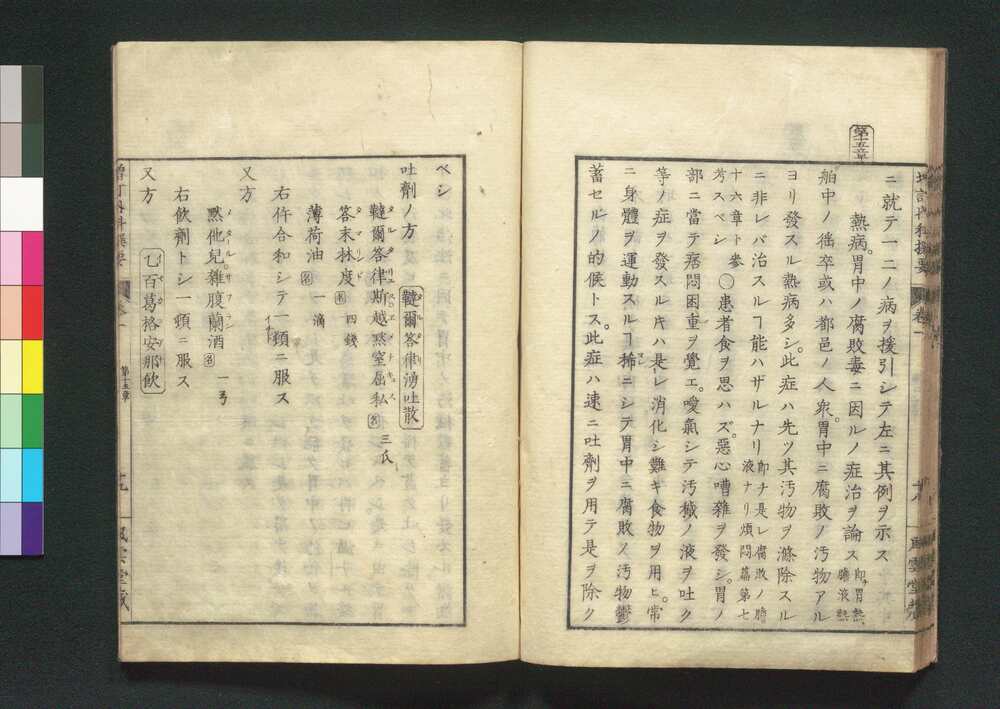 第十五章
ニ就テ一二ノ病ヲ援引シテ左ニ其例ヲ示ス
熱病。胃中ノ腐敗毒ニ因ルノ症治ヲ論ス 即胃熱 膽液熱
舶中ノ徭卒或ハ都邑ノ人衆。胃中ニ腐敗ノ汚物アル
ヨリ發スル熱病多シ。此症ハ先ツ其汚物ヲ滌除スル
ニ非レバ治スルヿ能ハザルナリ 即チ是レ腐敗ノ膽液ナリ煩悶篇第七
十六章ト參考スベシ ○患者食ヲ思ハズ。惡心嘈雜ヲ發シ。胃ノ
部ニ當テ痞悶困重ヲ覺エ。噯氣シテ汚穢ノ液ヲ吐ク
等ノ症ヲ發スルキハ是レ消化シ難キ食物ヲ用ヒ。常
ニ身體ヲ運動スルヿ稀ニシテ胃中ニ腐敗ノ汚物鬱
蓄セルノ的候トス。此症ハ速ニ吐劑ヲ用テ是ヲ除ク
卷一
ベシ
吐劑ノ方 韃爾答律湧吐散
韃爾答律斯越黙窒屈私 名 三氐
答末林度 名 四錢
薄荷油 名 一滴
右件合和シテ一頓ニ服ス
又方
黙他兒雜腹蘭酒 名 一弓
右飲劑トシ一頓ニ服ス
又方 乙百葛格安那飲
第十五章
十九